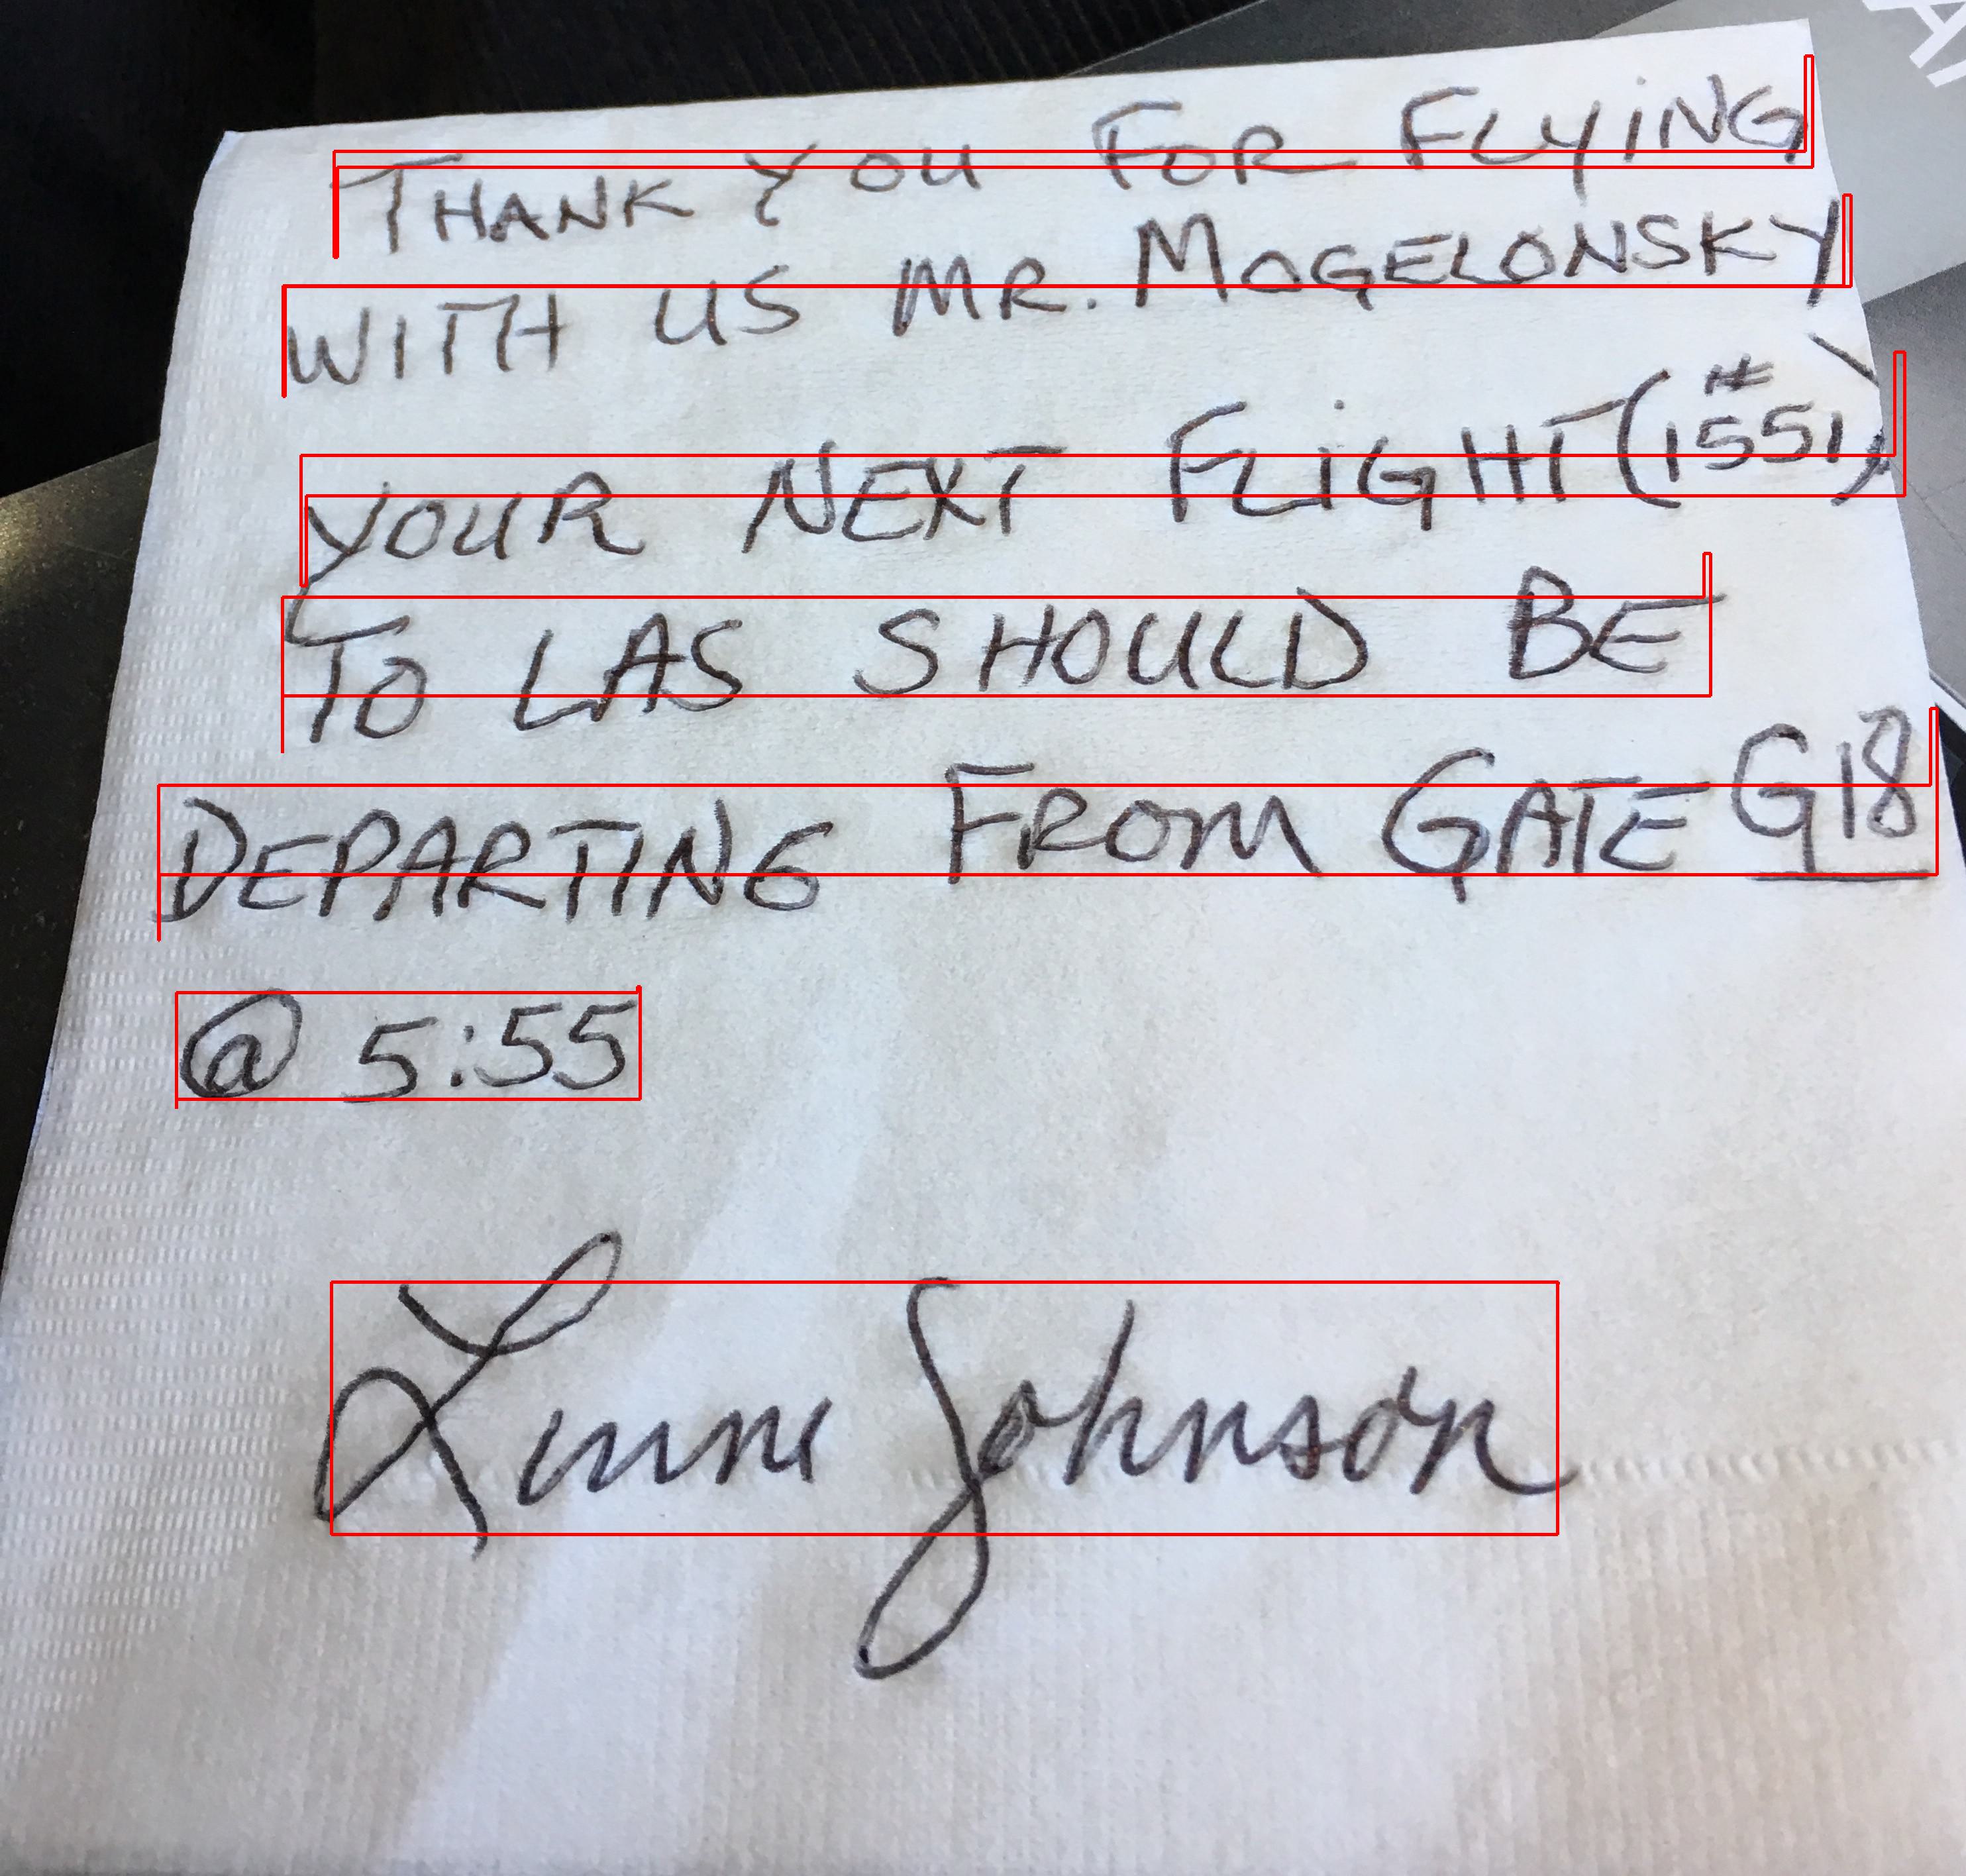 THANK YOU FOR FLYING
WITH US MR. MOGELONSKY
YOUR NEXT FLIGHT (#1551)
TO LAS SHOULD BE
DEPARTING FROM GATE G18
@ 5:55
Johnson